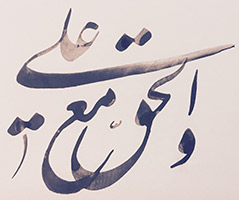 والحق مع علي